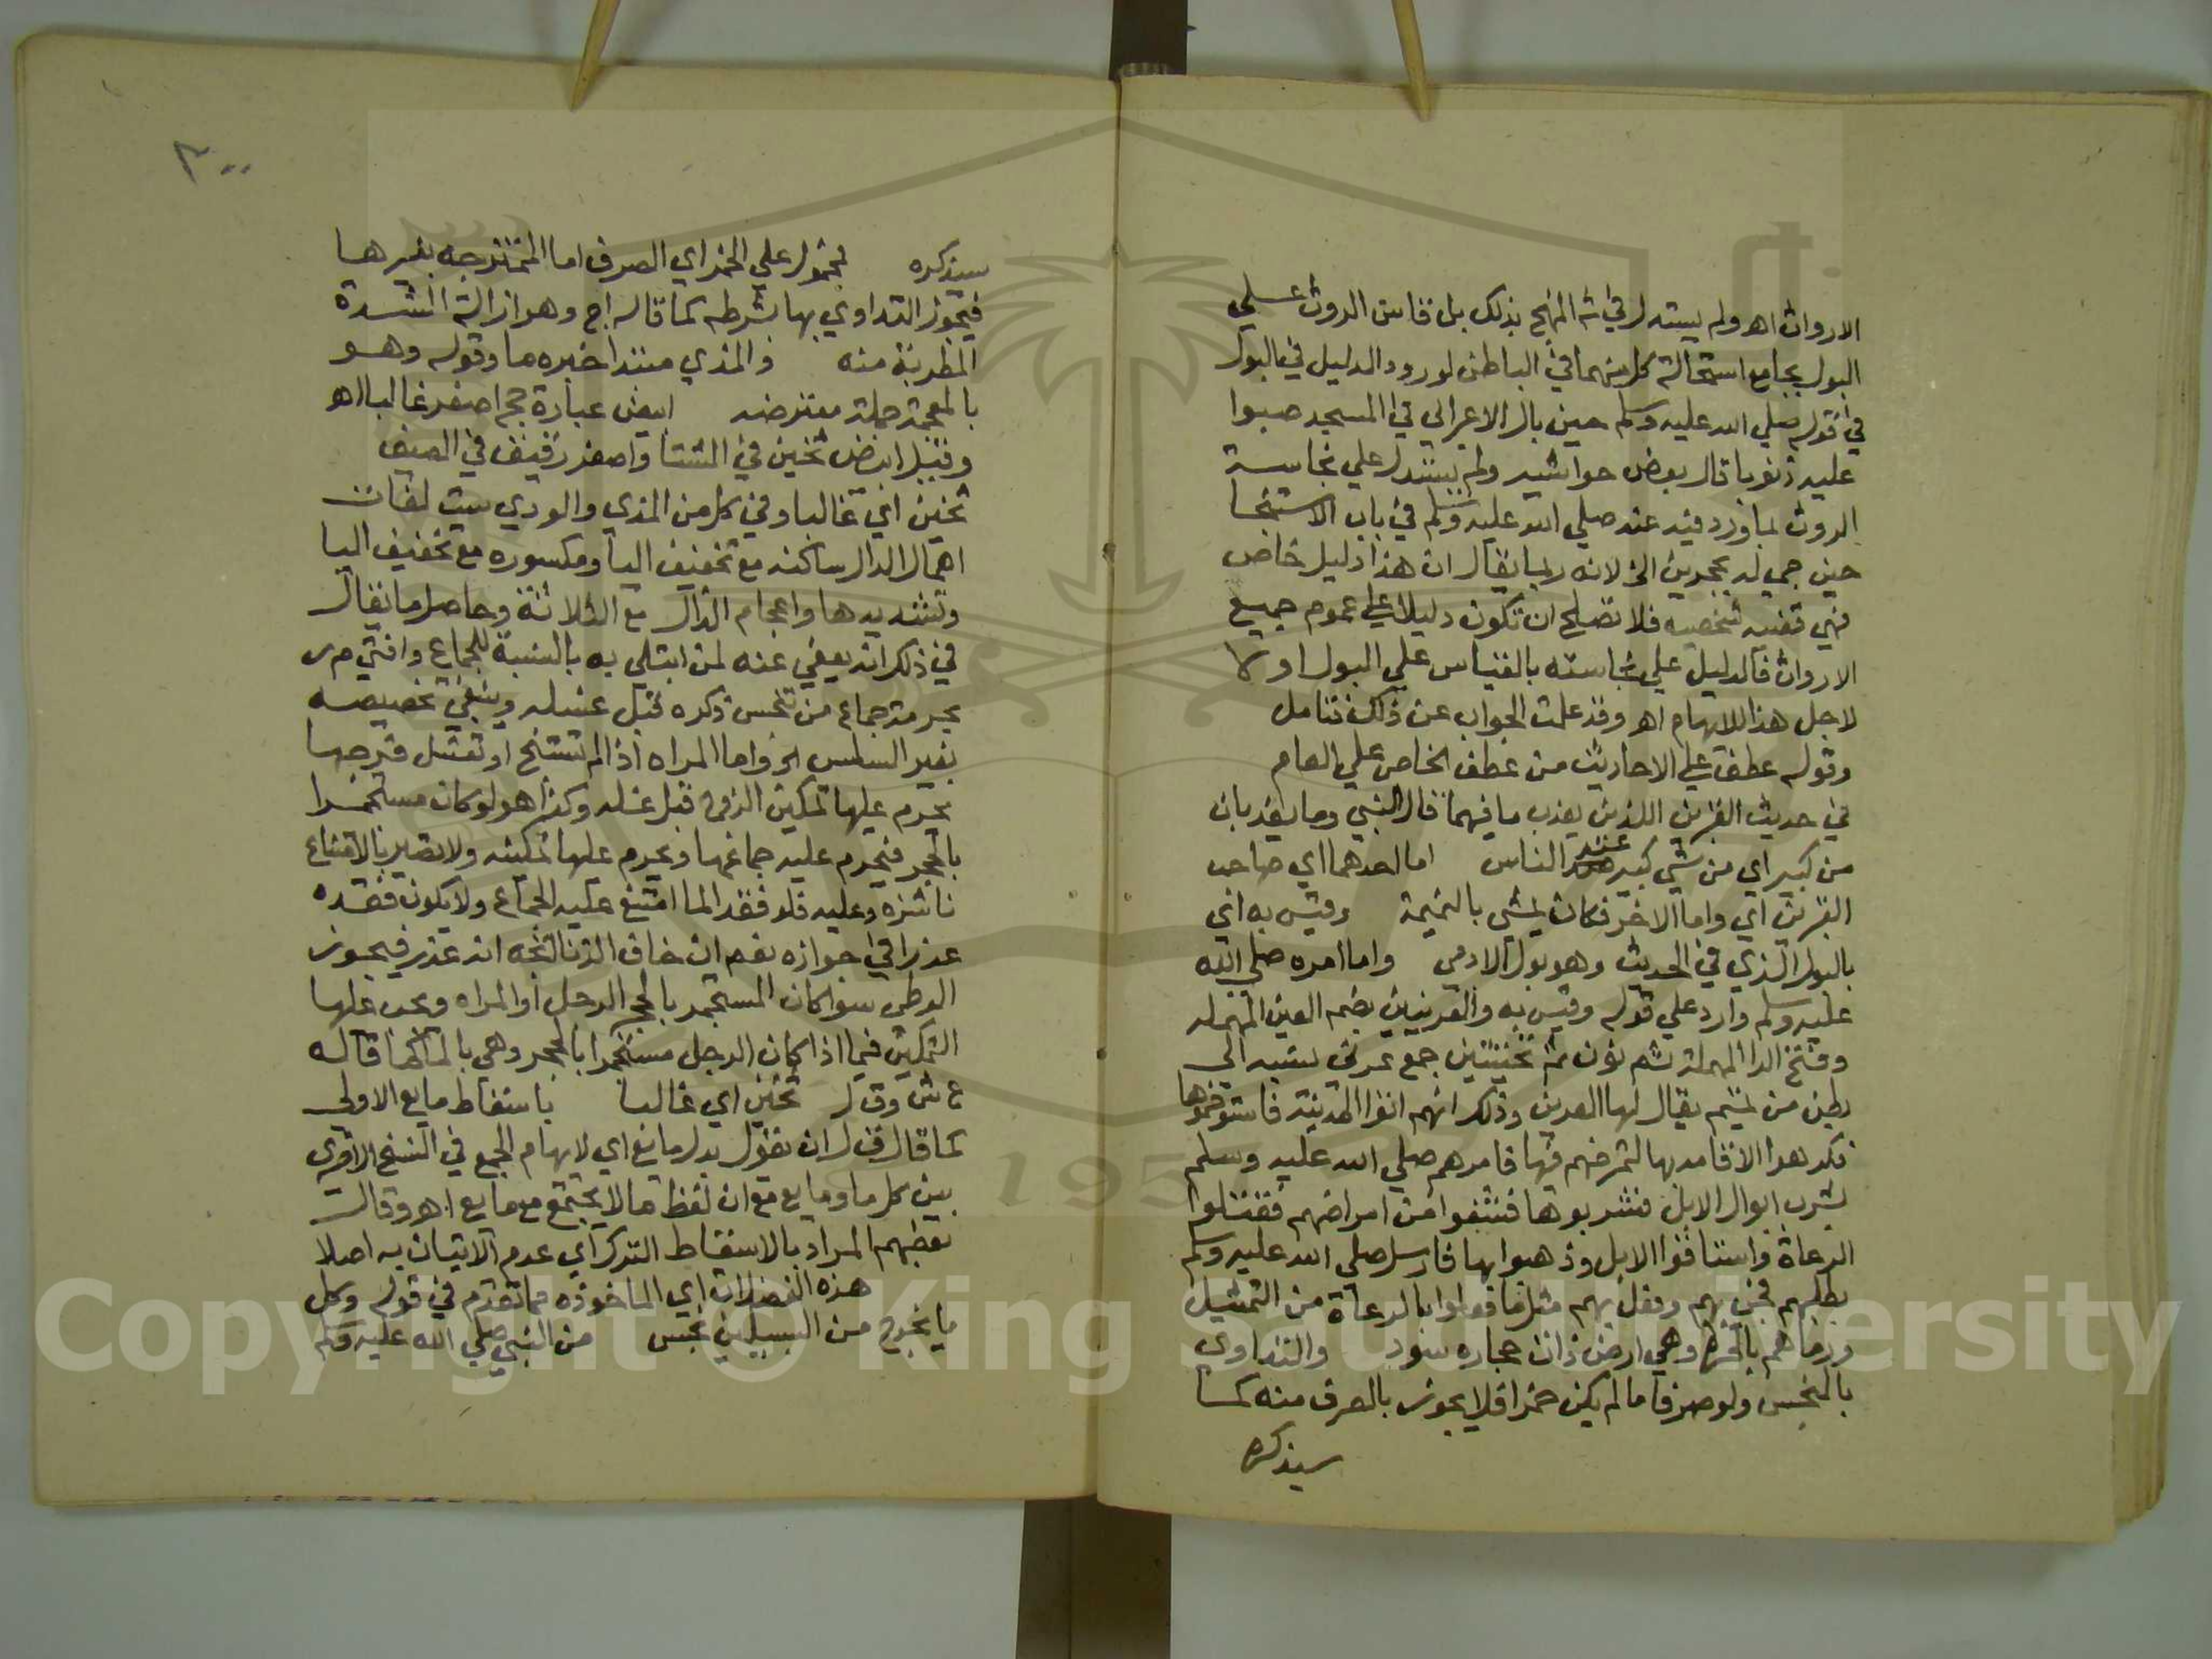 الاروات اهـ ولم يستدل في شـ المنهج بذلك بل قاس الروث علي
البول بجامع استحالة كل منهما في الباطن لورود الدليل في البول
في قوله صلي الله عليه وسلم حين بال الاعرابي في المسجد صبوا
عليه ذنوبا قال بعض حواشيه ولم يستدل علي نجاسة
الروث بما ورد فيه عنه صلي الله عليه وسلم في باب الاستنجا
حين جي له بحجرين الخ لانه ربما يقال ان هذا دليل خاص
فهي قضيه شخصيه فلا تصلح ان تكون دليلا علي عموم جميع
الاروات فالدليل علي نجاسته بالقياس علي البول اولا
لاجل هذا اللابهام اهـ وقد علمت الجواب عن ذلك تتامل
وقوله عطف علي الاحاديث من عطف الخاص علي العام
في حديث القبرين اللذين يعذب ما فيهما قال النبي وما يعذبان
من كبير اي من شي كبير عند الناس اما احدهما اي صاحب
القبرين اي واما الاخر فكان يمشي بالنميمة وقيس به اي
بالبول الذي في الحديث وهو بول الادمي واما امره صلي الله
عليه وسلم وارد علي قوله وقيس به والعرنيين بضم العين المهمله
وفتح الرا المهملة ثم نون ثم تحتيتين جمع عرني نسبه الي
بطن من تميم يقال لها العرين وذلك انهم اتوا المدينة فاستوخموها
فكرهوا الاقامه بها لتمرضهم فيها فامرهم صلي الله عليه وسلم
بشرب ابوال الابل فشربوها فشفوا من امراضهم فقتلوا
الرعاة واستاقوا الابل وذهبوا بها فارسل صلي الله عليه وسلم
بطلبهم فجي بهم وفعل بهم مثل ما فعلوا بالرعاة من التمثيل
ورماهم بالحره وهي ارض ذات حجاره سود والتداوي
بالنجس ولو صرفا ما لم يكن خمرا فلا يجوز بالصرف منه كما
سيذكره
٣٠٠
سيذكره محمول علي الخمر اي الصرف اما الممتزجه بغيرها
فيجوز التداوي بها بشرطه كما قاله اج وهو ازالة الشدة
المطربة منه والمذي مبتدا خبره ما وقوله وهو
بالمعجمة جملة معترضه ابيض عبارة حج اصفر غالبا اهـ
وقيل ابيض ثخين في الشتا واصفر رقيق في الصيف
ثخين اي غالبا وفي كل من المذي والودي ست لغات
اهمال الدال ساكنه مع تخفيف اليا ومكسوره مع تخفيف اليا
وتشديدها واعجام الذال مع الثلاثة وحاصل ما يقال
في ذلك انه يعفي عنه لمن ابتلي به بالنسبة للجماع وافتي م ر
بحرمة جماع من تنجس ذكره قبل غسله وينبغي تخصيصه
بغير السلس الخ واما المراه اذا لم تستنج او تغسل فرجها
يحرم عليها تمكين الزوج قبل غسله وكذا هو لو كان مستجمرا
بالحجر فيحرم عليه جماعها ويحرم عليها تمكينه ولا تصير بالامتناع
ناشزه وعليه فلو فقد الما امتنع عليه الجماع ولا يكون فقده
عذرا في جوازه نعم ان خاف الزنا اتجه انه عذر فيجوز
الوطي سوا كان المستجمر بالحجر الرجل او المراه ويجب عليها
التمكين فيما اذا كان الرجل مستجمرا بالحجر وهي بالما كما قاله
ع ش وق ل ثخين اي غالبا باسقاط مايع الاولي
كما قال ق ل ان يقول بدل مايع اي لابهام الجمع في النسخ الاخري
بين كل ما ومايع مع ان لفظ ما لا يجتمع مع مايع اهـ وقال
بعضهم المراد بالاسقاط الترك اي عدم الاتيان به اصلا
هذه الفضلات اي الماخوذه مما تقدم في قوله وكل
ما يخرج من السبيلين نجس من النبي صلي الله عليه وسلم
Copyright © King Saud University
1957